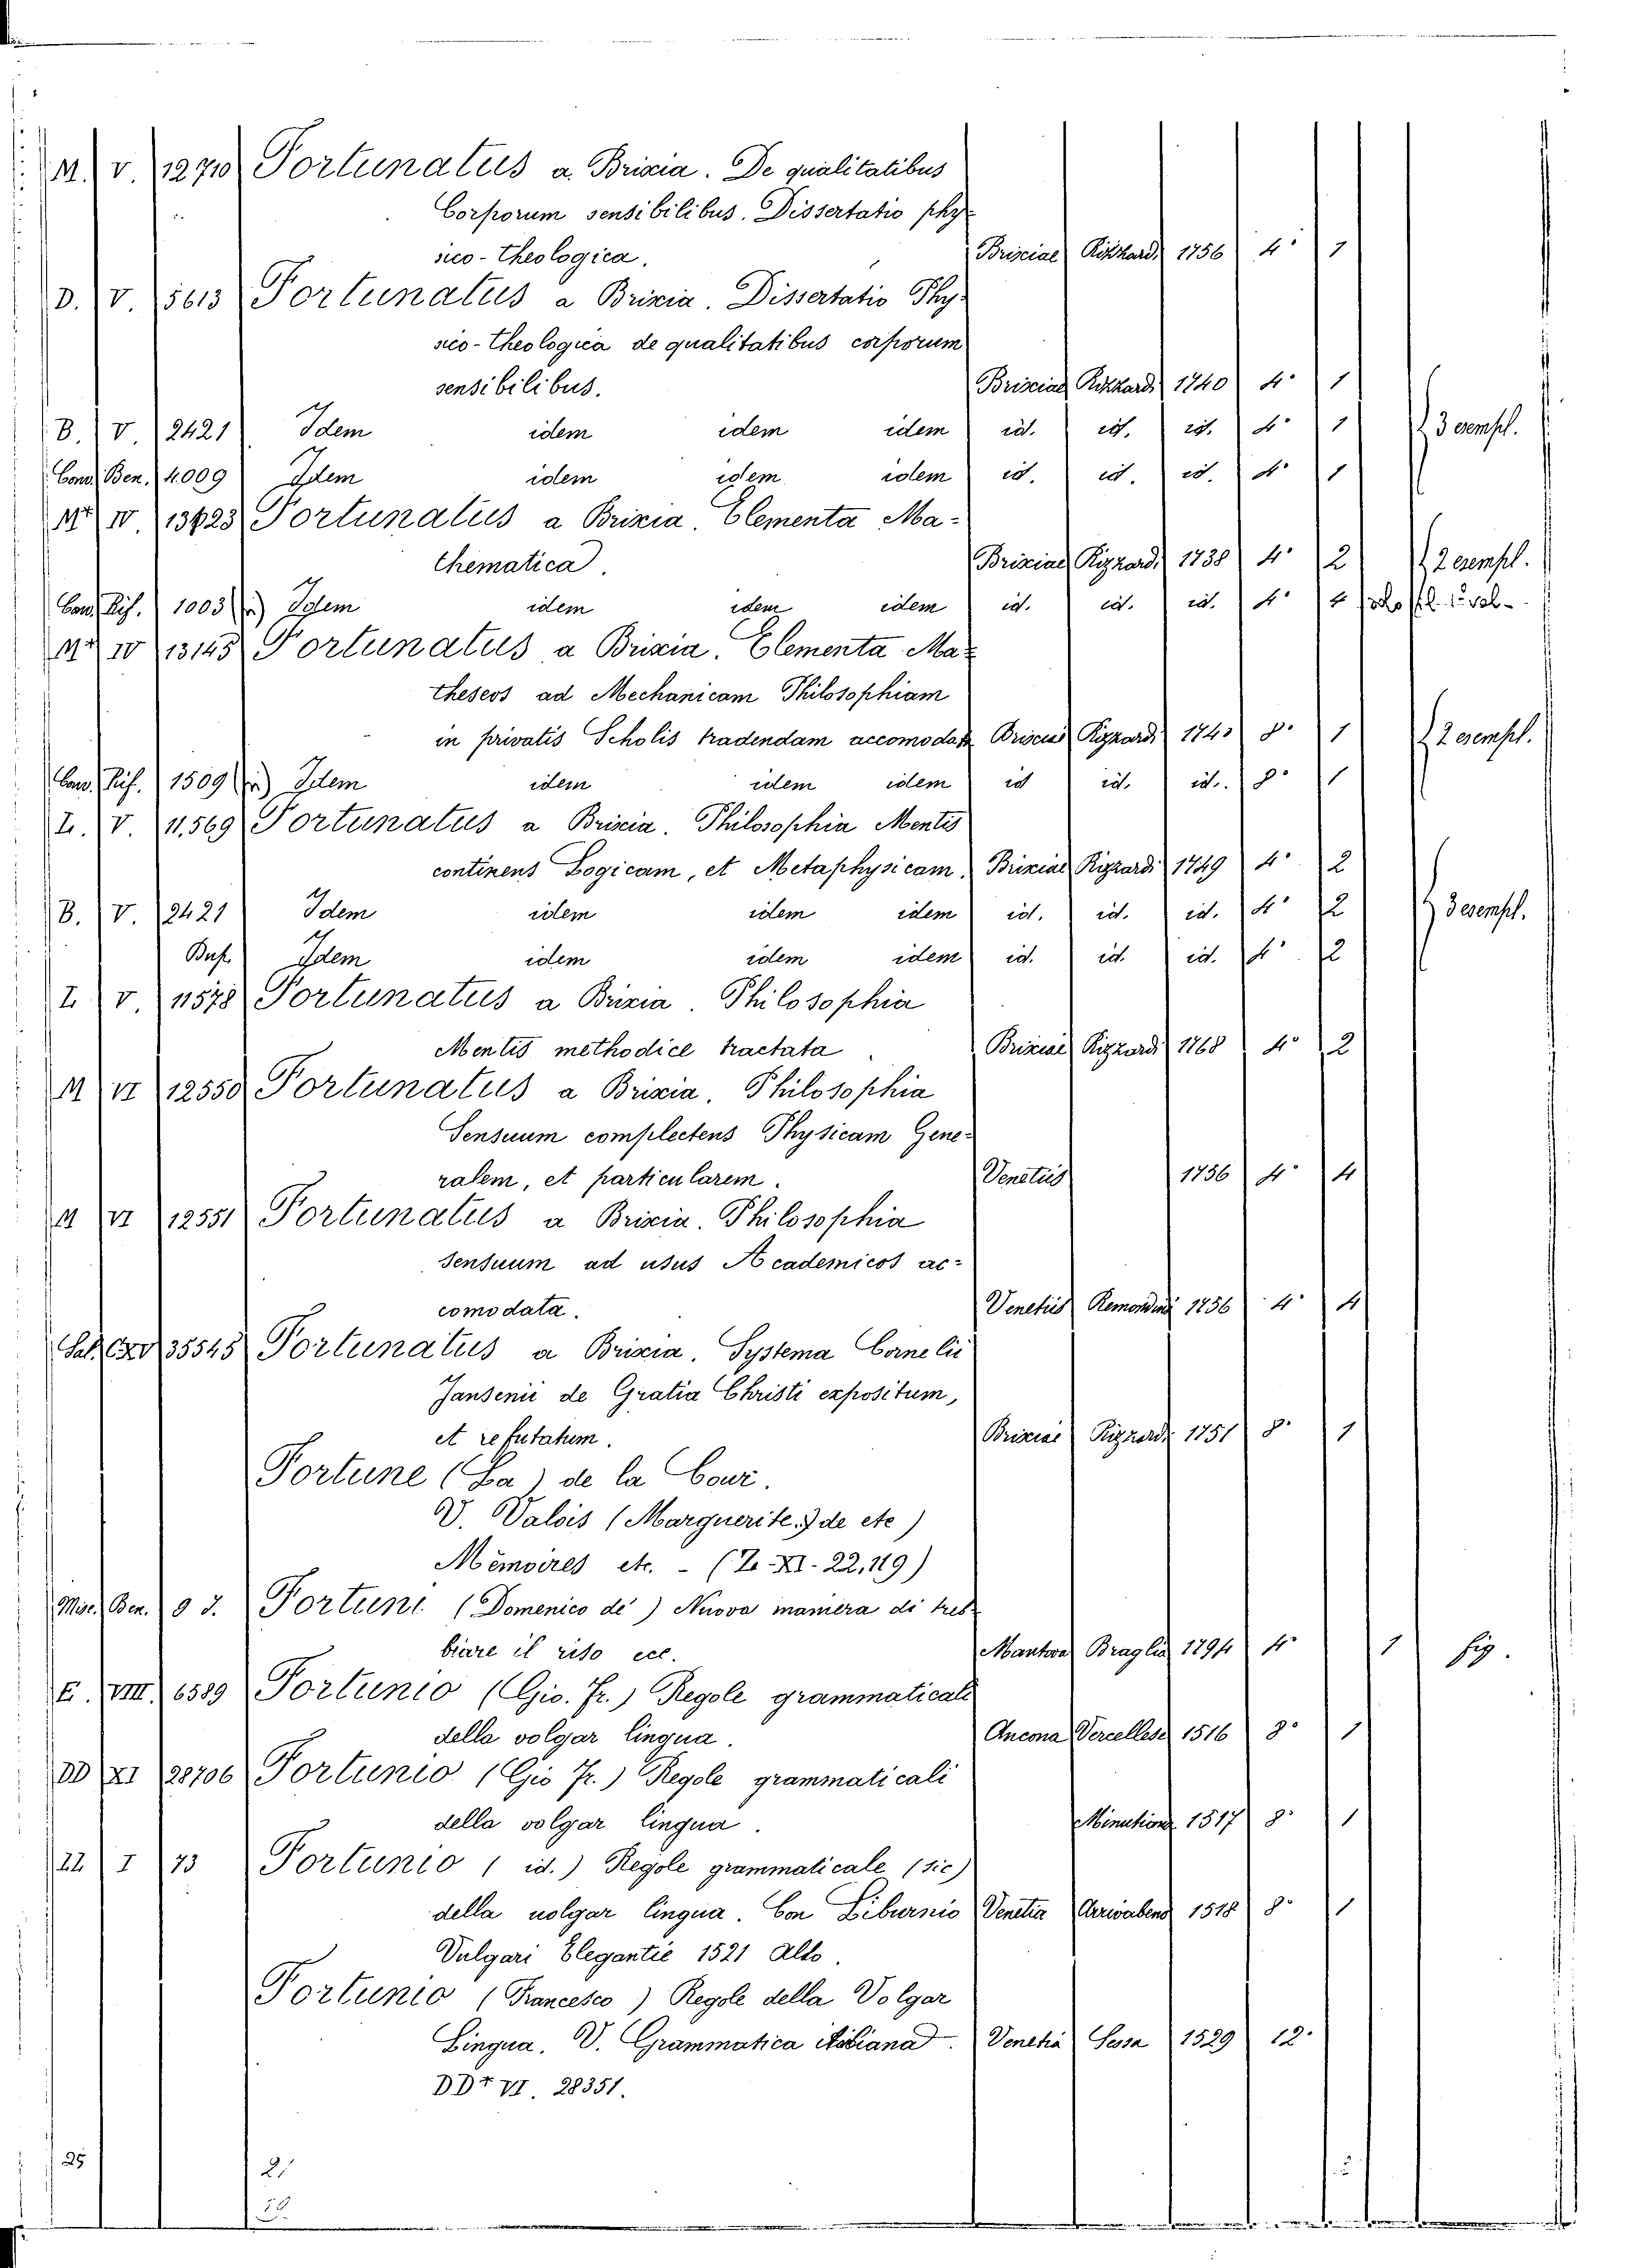 M. V. 12710 Fortunatus a Brixia. De qualitatibus
Corporum sensibilibus. Dissertatio phy-
sico-theologica. Brixiae Rizzardi 1756 4° 1
D. V. 5613 Fortunatus a Brixia. Dissertatio Phy-
sico-theologica de qualitatibus corporum
sensibilibus. Brixiae Rizzardi 1740 4° 1
B. V. 2421 Idem idem idem idem id. id. id. 4° 1 3 esempl.
Cons. Ben. 4009 Idem idem idem idem id. id. id. 4° 1
IV 13423 Fortunatus a Brixia. Elementa Ma-
thematica. Brixiae Rizzardi 1738 4° 2 2 esempl.
Rif. 1003 Idem idem idem idem id. id. id. 4°
IV 13145 Fortunatus a Brixia. Elementa Ma-
theseos ad Mechanicam Philosophiam
in privatis Scholis tradendam accomodata Brixiae Rizzardi 8° 1 2 esempl.
Rif. 1509 Idem idem idem idem id id. id. 8° 1
I. V. 11.569 Fortunatus a Brixia. Philosophia Mentis
continens Logicam, et Metaphysicam. Brixiae Rizzardi 1749 4° 2
B. V. 2421 Idem idem idem idem id. id. id. 4° 2 3 esempl.
Idem idem idem idem id. id. id. 4° 2
I V. 11578 Fortunatus a Brixia. Philosophia
Mentis methodice tractata. Brixiae Rizzardi 1768 4° 2
M VI 12550 Fortunatus a Brixia. Philosophia
Sensuum complectens Physicam Gene-
ralem, et particularem. Venetiis 1756 4° 4
M VI 12551 Fortunatus a Brixia. Philosophia
sensuum ad usus Academicos ac-
comodata. Venetiis Remondini 1756 4° 4
Sal. 35545 Fortunatus a Brixia. Systema Cornelii
Jansenii de Gratia Christi expositum,
et refutatum. Brixiae Rizzardi 1751 8° 1
Fortune (La) de la Cour.
V. Valois (Marguerite de etc)
Mémoires etc. - (Z-XI-22,119)
Misc. Ben. 9 J. Fortuni (Domenico de') Nuova maniera di treb-
biare il riso ecc. Mantova Braglia 1794 4° 1 fig.
E. VIII. 6589 Fortunio (Gio. Fr.) Regole grammaticali
della volgar lingua. Ancona Vercellese 1516 8° 1
DD XI 28706 Fortunio (Gio Fr.) Regole grammaticali
della volgar lingua. 1517 8° 1
22 I 73 Fortunio (id.) Regole grammaticale (sic)
della volgar lingua. Con Liburnio Venetia Arrivabene 1518 8° 1
Vulgari Elegantie 1521 Aldo.
Fortunio (Francesco) Regole della Volgar
Lingua. V. Grammatica italiana. Venetia Sessa 1529 12°
DD† VI. 28351.
25 2